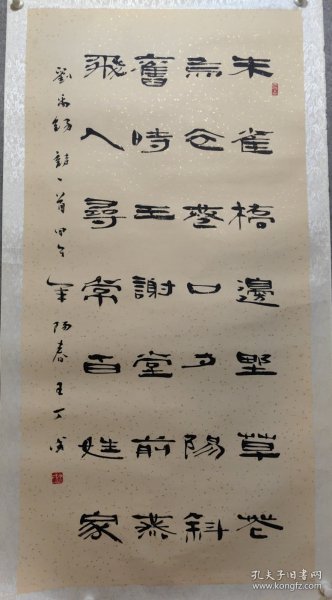 朱雀橋邊野草花
烏衣巷口夕陽斜
舊時王謝堂前燕
飛入尋常百姓家
劉禹錫詩一首甲午年陽春王丁
孔夫子旧书网